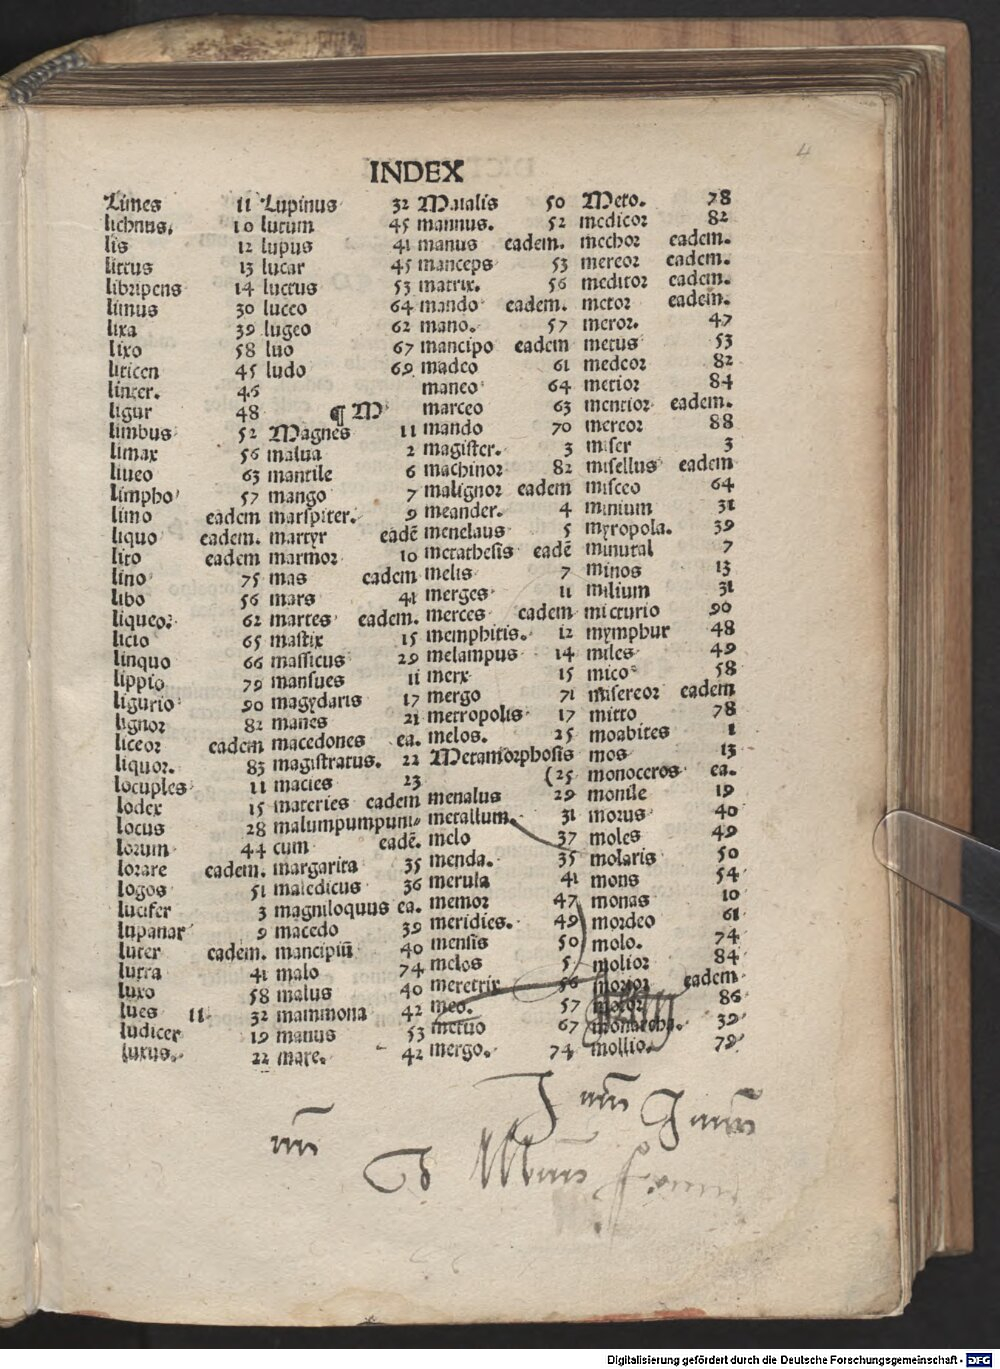 4
INDEX
Limes 11
lichnus. 10
lis 12
littus 13
libripens 14
limus 30
lixa 39
lixo 58
liticen 45
linter. 46
ligur 48
limbus 52
limax 56
liueo 63
limpho 57
limo eadem
liquo eadem.
lito eadem
lino 75
libo 56
liqueor 62
licio 65
linquo 66
lippio 79
ligurio 90
lignor 82
liceor eadem
liquor. 83
locuples 11
lodex 15
locus 28
lorum 44
lorare eadem.
logos 51
lucifer 3
lupanar 9
luter eadem.
lutra 41
luxo 58
lues 11 32
ludicer 19
luxus. 22
Lupinus 32
lutum 45
lupus 41
lucar 45
luctus 53
luceo 64
lugeo 62
luo 67
ludo 69
¶ M
Magnes 11
malua 2
mantile 6
mango 7
marspiter. 9
martyr eadē
marmor 10
mas eadem
mars 41
martes eadem.
mastix 15
massicus 29
mansues 11
magydaris 17
manes 21
macedones ea.
magistratus. 22
macies 23
materies eadem
malumpumpuni=
cum eadē.
margarita 35
maledicus 36
magniloquus ea.
macedo 39
mancipiū 40
malo 74
malus 40
mammona 42
manus 53
mare. 42
Matalis 50
mannus. 52
manus eadem.
manceps 53
matrix. 56
mando eadem.
mano. 57
mancipo eadem
madeo 61
maneo 64
marceo 63
mando 70
magister. 3
machinor 82
malignor eadem
meander. 4
menelaus 5
metathesis eadē
melis 7
merges 11
merces eadem
memphitis. 12
melampus 14
merx 15
mergo 71
metropolis 17
melos. 25
Metamorphosis
(25
menalus 29
metallum. 31
melo 37
menda. 35
merula 41
memor 47
meridies. 49
mensis 50
melos 5
meretrix 56
meo. 57
metuo 67
mergo. 74
Meto. 78
medicor 82
mechor eadem.
mereor eadem.
meditor eadem.
metor eadem.
meror. 47
metus 53
medeor 82
metior 84
mentior eadem.
mercor 88
miser 3
misellus eadem
misceo 64
minium 31
myropola. 39
minutal 7
minos 13
milium 31
micturio 90
mymphur 48
miles 49
mico 58
misereor eadem
mitto 78
moabites 1
mos 13
monoceros ea.
monile 19
morus 40
moles 49
molaris 50
mons 54
monas 10
mordeo 61
molo. 74
molior 84
morior eadem
moror 86
monarcha. 39
mollio. 79